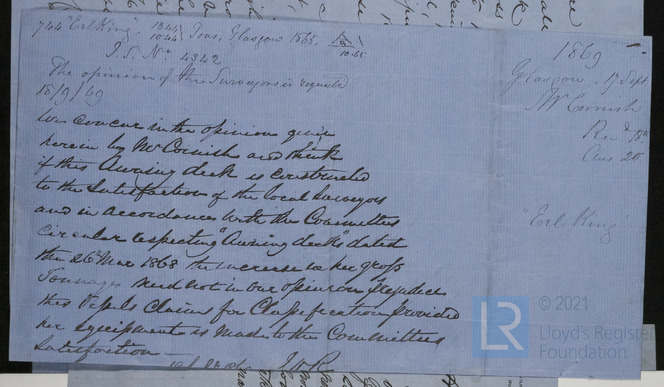 744 "Erl King". 1344/1044 Tons, Glasgow 1865. A 10.65
I.S. No. 4342
The opinion of the Surveyors is requested
18/9/69
We concur in the opinion given
herein by Mr Cornish and think
if this Awning deck is constructed
to the Satisfaction of the local Surveyors
and in accordance with the Committees
circular respecting "Awning decks" dated
the 26 Mar 1868 the increase in her gross
Tonnage need not in our opinion Prejudice
this Vessels claims for Classification Provided
her equipment is made to the Committees
Satisfaction —
1869
Glasgow. 17 Sept
Mr Cornish
Recd 18
Ans 20
"Erl King"
LR
© 2021
Lloyd's Register
Foundation